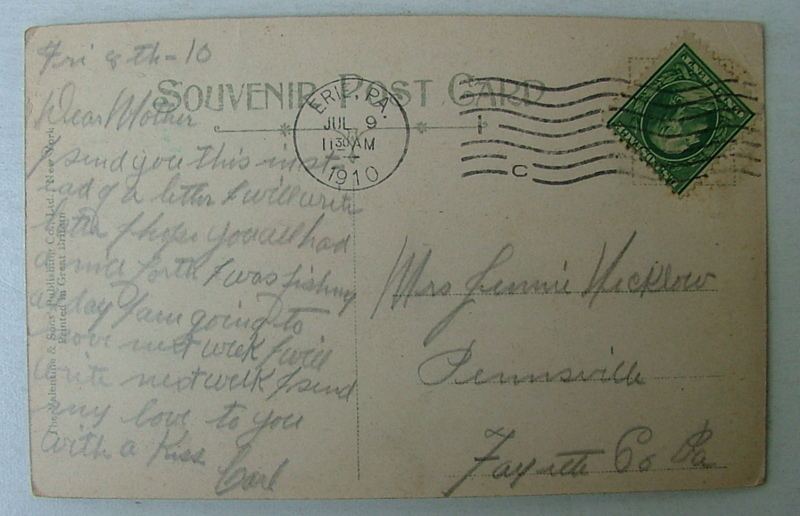 Fri 8th-10
SOUVENIR POST CARD
ERIE, PA.
JUL 9
11 30 AM
1910
C
Dear Mother
I send you this inst-
ead of a letter I will write
later I hope you all had
a nice forth I was fishing
all day I am going to
move next week I will
write next week I send
my love to you
with a Kiss
Carl
The Valentine & Sons' Publishing Co., Ltd., New York
Printed in Great Britain
Mrs Jennie Hicklow
Pennsville
Fayette Co Pa